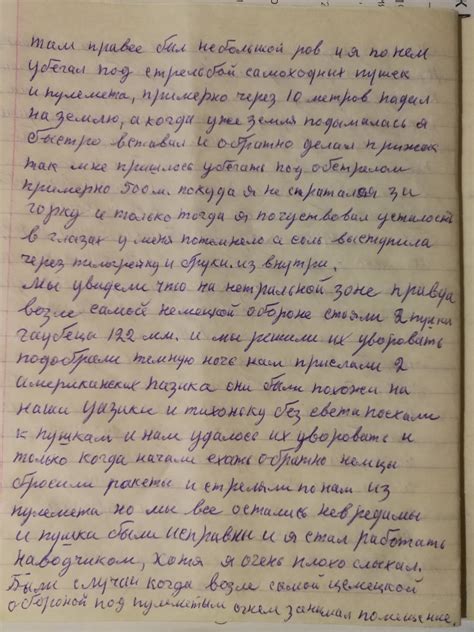 там правее был небольшой ров и я по нем
убегал под стрельбой самоходных пушек
и пулемета, примерно через 10 метров падал
на землю, а когда уже земля подымалась я
быстро вставал и обратно делал прыжок
так мне пришлось убегать под обстрелом
примерно 500 м. покуда я не спратался за
горку и только тогда я почуствовал усталость
в глазах у меня потемнело а соль выступила
через тилогрейку и бруки. из внутри.
Мы увидели что на нетральной зоне правда
возле самой немецкой обороне стояли 2 пушки
гаубеца 122 мм. и мы решили их уворовать
подобрали темную ночь нам прислали 2
американских газика они были похожи на
наши уазики и тихоньку без света поехали
к пушкам и нам удалось их уворовать и
только когда начали ехать обратно немцы
сбросили ракеты и стреляли по нам из
пулемета но мы все остались невредимы
и пушки были исправны и я стал работать
наводчиком, хотя я очень плохо слыхал.
Были случаи когда возле самой немецкой
обороной под пулеметным огнем занимал помещение